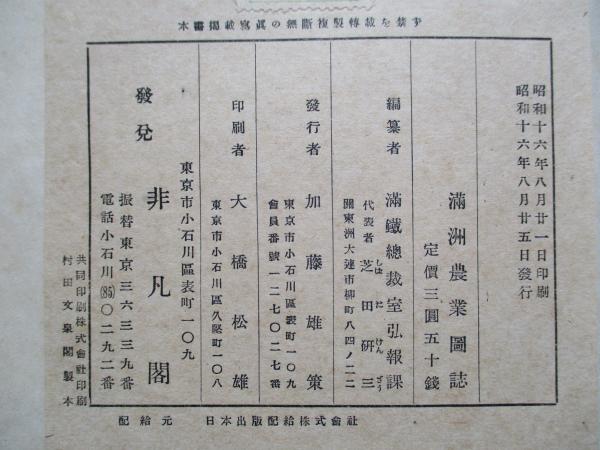 本書掲載寫眞の無斷複製轉載を禁ず
昭和十六年八月廿一日印刷
昭和十六年八月廿五日發行
滿洲農業圖誌
定價三圓五十錢
編纂者 滿鐵總裁室弘報課
代表者 芝田硏三
しばたけんざう
關東洲大連市柳町八四ノ二二
發行者 加藤雄策
東京市小石川區表町一〇九
會員番號一二七〇二七番
印刷者 大橋松雄
東京市小石川區久堅町一〇八
東京市小石川區表町一〇九
發兌 非凡閣
振替東京三六三三九番
電話小石川(85)〇二九二番
共同印刷株式會社印刷
村田文泉閣製本
配給元 日本出版配給株式會社